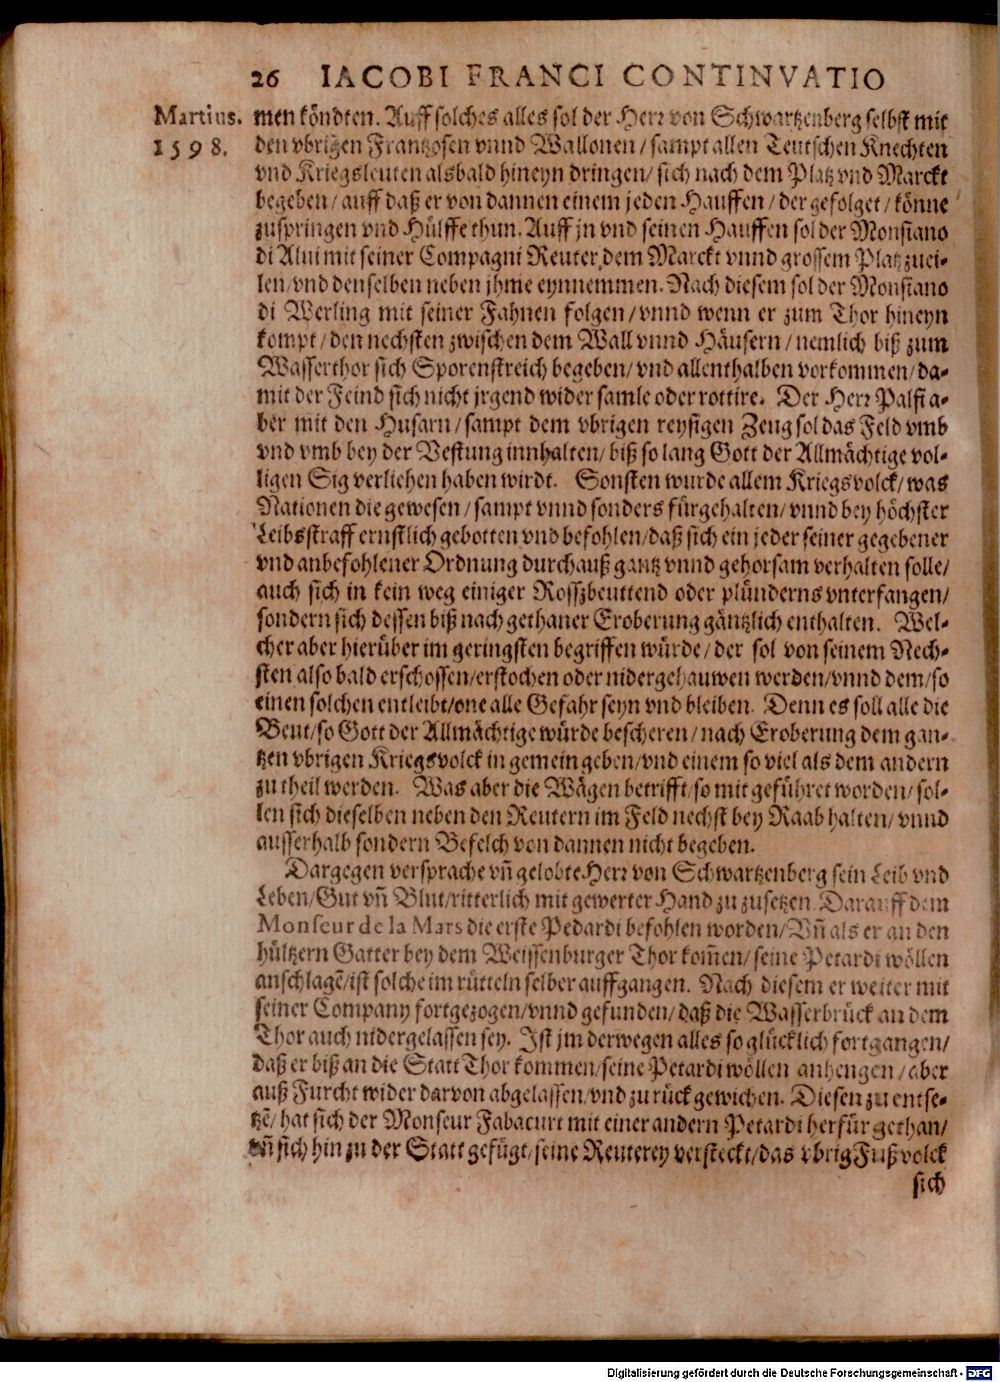 26 IACOBI FRANCI CONTINVATIO
Martius. 1598.
men köndten. Auff solches alles sol der Herr von Schwartzenberg selbst mit
den vbrigen Frantzosen vnnd Wallonen / sampt allen Teutschen Knechten
vnd Kriegsleuten alsbald hineyn dringen / sich nach dem Platz vnd Marckt
begeben / auff daß er von dannen einem jeden Hauffen / der gefolget / könne
zuspringen vnd Hülffe thun. Auff jn vnd seinen Hauffen sol der Monsiano
di Alui mit seiner Compagni Reuter dem Marckt vnnd grossem Platz zuei-
len / vnd denselben neben jhme eynnemmen. Nach diesem sol der Monsiano
di Werling mit seiner Fahnen folgen / vnnd wenn er zum Thor hineyn
kompt / den nechsten zwischen dem Wall vnnd Häusern / nemlich biß zum
Wasserthor sich Sporenstreich begeben / vnd allenthalben vorkommen / da-
mit der Feind sich nicht jrgend wider samle oder rottire. Der Herr Palfi a-
ber mit den Husarn / sampt dem vbrigen reysigen Zeug sol das Feld vmb
vnd vmb bey der Vestung innhalten / biß so lang Gott der Allmächtige vol-
ligen Sig verliehen haben wirdt. Sonsten wurde allem Kriegsvolck / was
Nationen die gewesen / sampt vnnd sonders fürgehalten / vnnd bey höchster
Leibsstraff ernstlich gebotten vnd befohlen / daß sich ein jeder seiner gegebener
vnd anbefohlener Ordnung durchauß gantz vnnd gehorsam verhalten solle /
auch sich in kein weg einiger Rosszbeuttend oder plünderns vnterfangen /
sondern sich dessen biß nach gethaner Eroberung gäntzlich enthalten. Wel-
cher aber hierüber im geringsten begriffen würde / der sol von seinem Nech-
sten also bald erschossen / erstochen oder nidergehauwen werden / vnnd dem / so
einen solchen entleibt / one alle Gefahr seyn vnd bleiben. Denn es soll alle die
Beut / so Gott der Allmächtige würde bescheren / nach Eroberung dem gan-
tzen vbrigen Kriegsvolck in gemein geben / vnd einem so viel als dem andern
zu theil werden. Was aber die Wägen betrifft / so mit geführet worden / sol-
len sich dieselben neben den Reutern im Feld nechst bey Raab halten / vnnd
ausserhalb sondern Befelch von dannen nicht begeben.
Dargegen versprache vñ gelobte Herr von Schwartzenberg sein Leib vnd
Leben / Gut vñ Blut / ritterlich mit gewerter Hand zu zusetzen. Darauff dem
Monseur de la Mars die erste Pedardi befohlen worden / Vñ als er an den
hültzern Gatter bey dem Weissenburger Thor kom̃en / seine Petardi wöllen
anschlagẽ / ist solche im rütteln selber auffgangen. Nach diesem er weiter mit
seiner Company fortgezogen / vnnd gefunden / daß die Wasserbrück an dem
Thor auch nidergelassen sey. Ist jm derwegen alles so glücklich fortgangen /
daß er biß an die Statt Thor kommen / seine Petardi wöllen anhengen / aber
auß Furcht wider darvon abgelassen / vnd zu rück gewichen. Diesen zu entse-
tzẽ / hat sich der Monseur Fabacurt mit einer andern Petardi herfür gethan /
vñ sich hin zu der Statt gefügt / seine Reuterey versteckt / das vbrig Fußvolck
sich
Digitalisierung gefördert durch die Deutsche Forschungsgemeinschaft - DFG